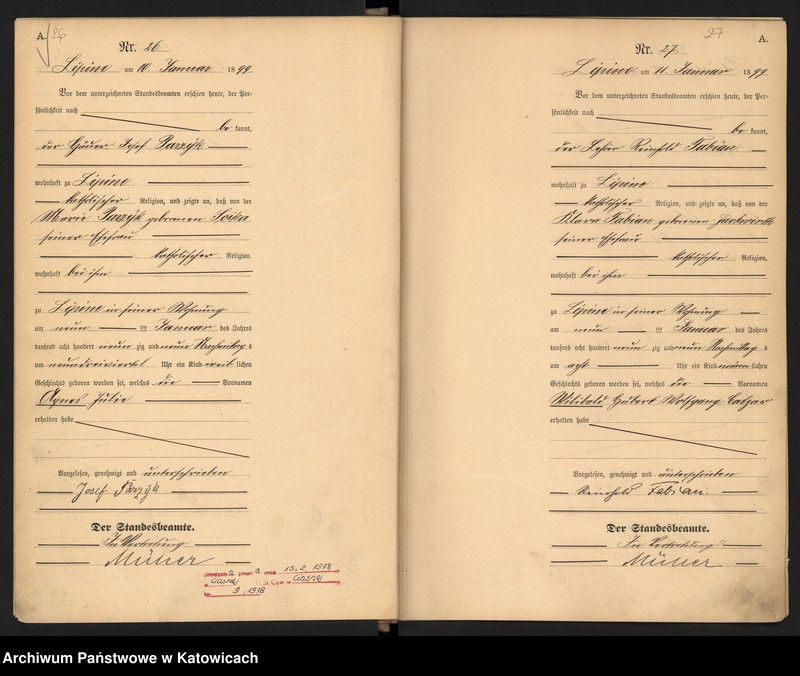 A. 26
Nr. 26
Lipine am 10. Januar 1899
Vor dem unterzeichneten Standesbeamten erschien heute, der Per-
sönlichkeit nach
be kannt,
der Häuer Josef Parzyk
wohnhaft zu Lipine
katholischer Religion, und zeigte an, daß von der
Marie Parzyk geborenen
seiner Ehefrau
katholischer Religion,
wohnhaft bei ihm
zu Lipine in seiner Wohnung
am neun ten Januar des Jahres
tausend acht hundert neun zig und neun Nachmittags
um neundreiviertel Uhr ein Kind weib lichen
Geschlechts geboren worden sei, welches die Vornamen
Agnes Julie
erhalten habe
Vorgelesen, genehmigt und unterschrieben
Josef Parzyk
Der Standesbeamte.
In Vertretung
Müller
15. 2. 1978
Nr. 9/1978
27 A.
Nr. 27.
Lipine am 11. Januar 1899
Vor dem unterzeichneten Standesbeamten erschien heute, der Per-
sönlichkeit nach
be kannt,
der Lehrer Reinhold Fabian
wohnhaft zu Lipine
katholischer Religion, und zeigte an, daß von der
Klara Fabian geborenen
seiner Ehefrau
katholischer Religion,
wohnhaft bei ihm
zu Lipine in seiner Wohnung
am neun ten Januar des Jahres
tausend acht hundert neun zig und neun Nachmittags
um acht Uhr ein Kind männ lichen
Geschlechts geboren worden sei, welches die Vornamen
Wilibald Hubert Wolfgang
erhalten habe
Vorgelesen, genehmigt und unterschrieben
Reinhold Fabian.
Der Standesbeamte.
In Vertretung
Müller
Archiwum Państwowe w Katowicach